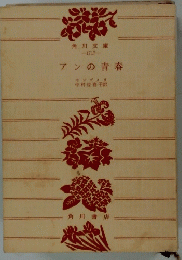 角川文庫
アンの青春
モンゴメリ
中村佐喜子訳
角川書店